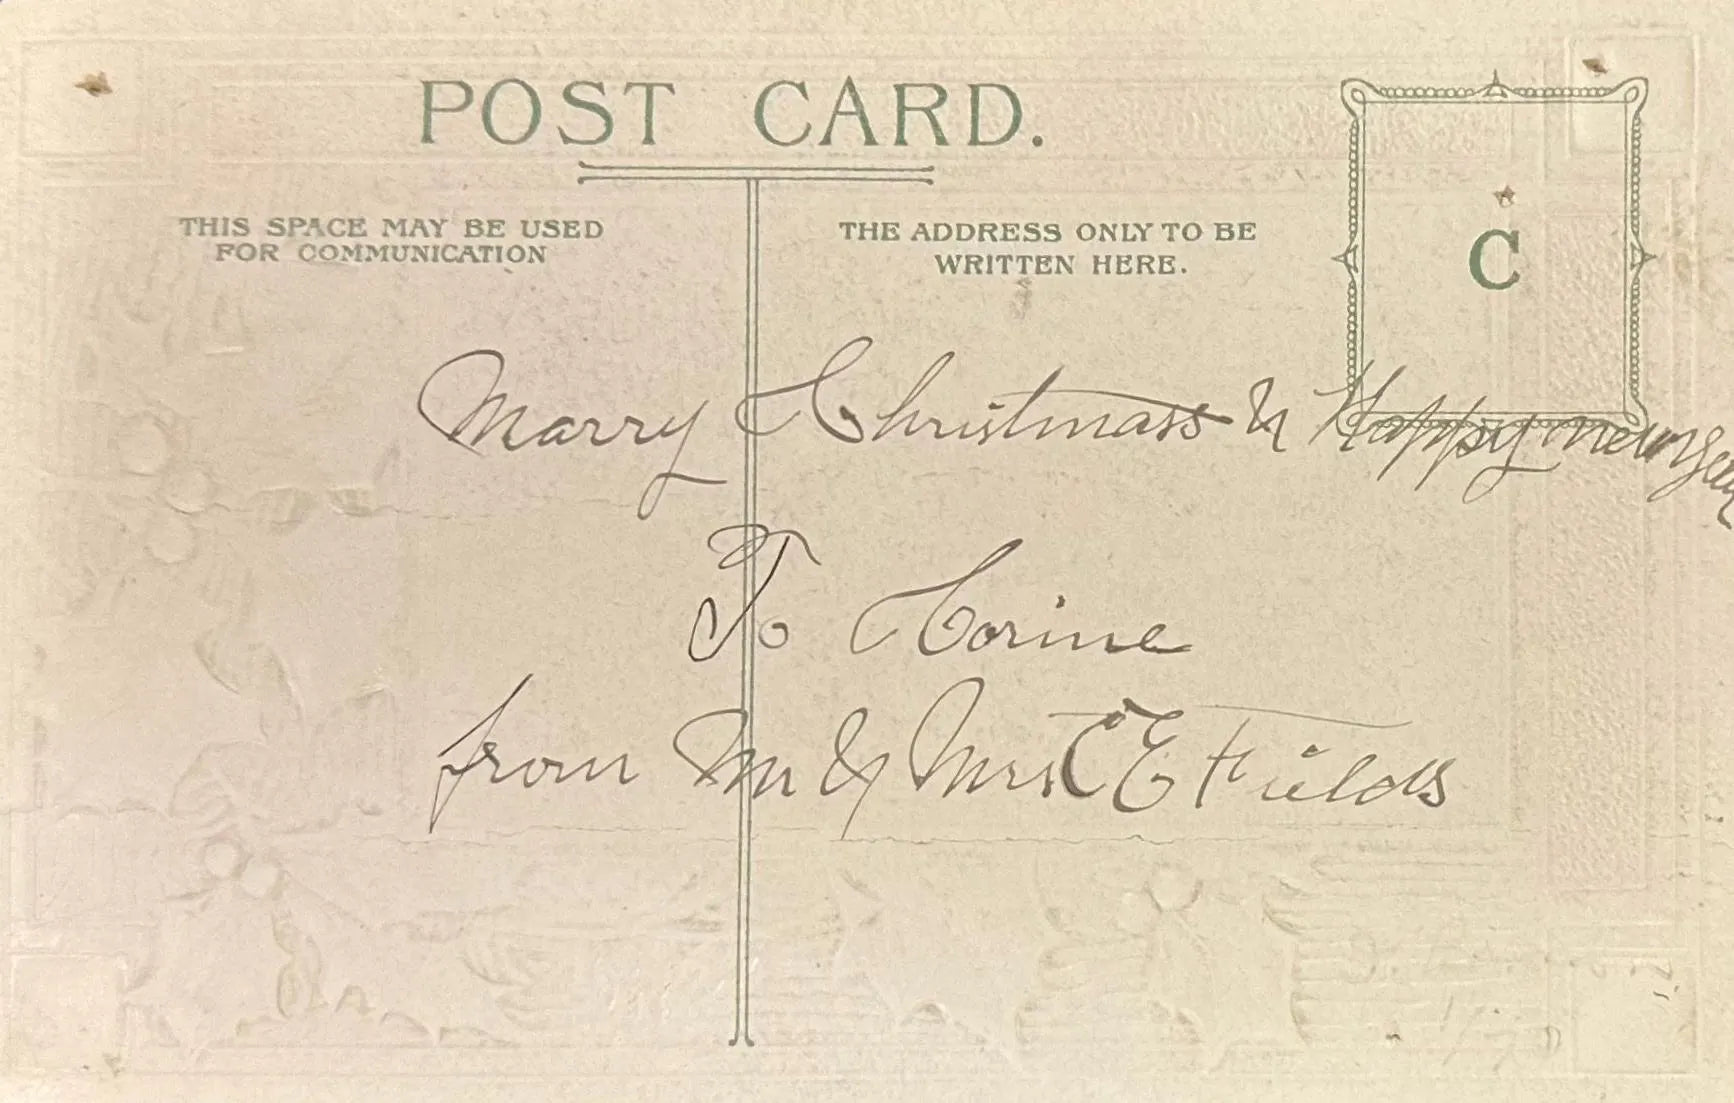 POST CARD.
THIS SPACE MAY BE USED
FOR COMMUNICATION
THE ADDRESS ONLY TO BE
WRITTEN HERE.
C
Marry Christmass & Happy new year
To Corine
from M & Mrs C E Fields